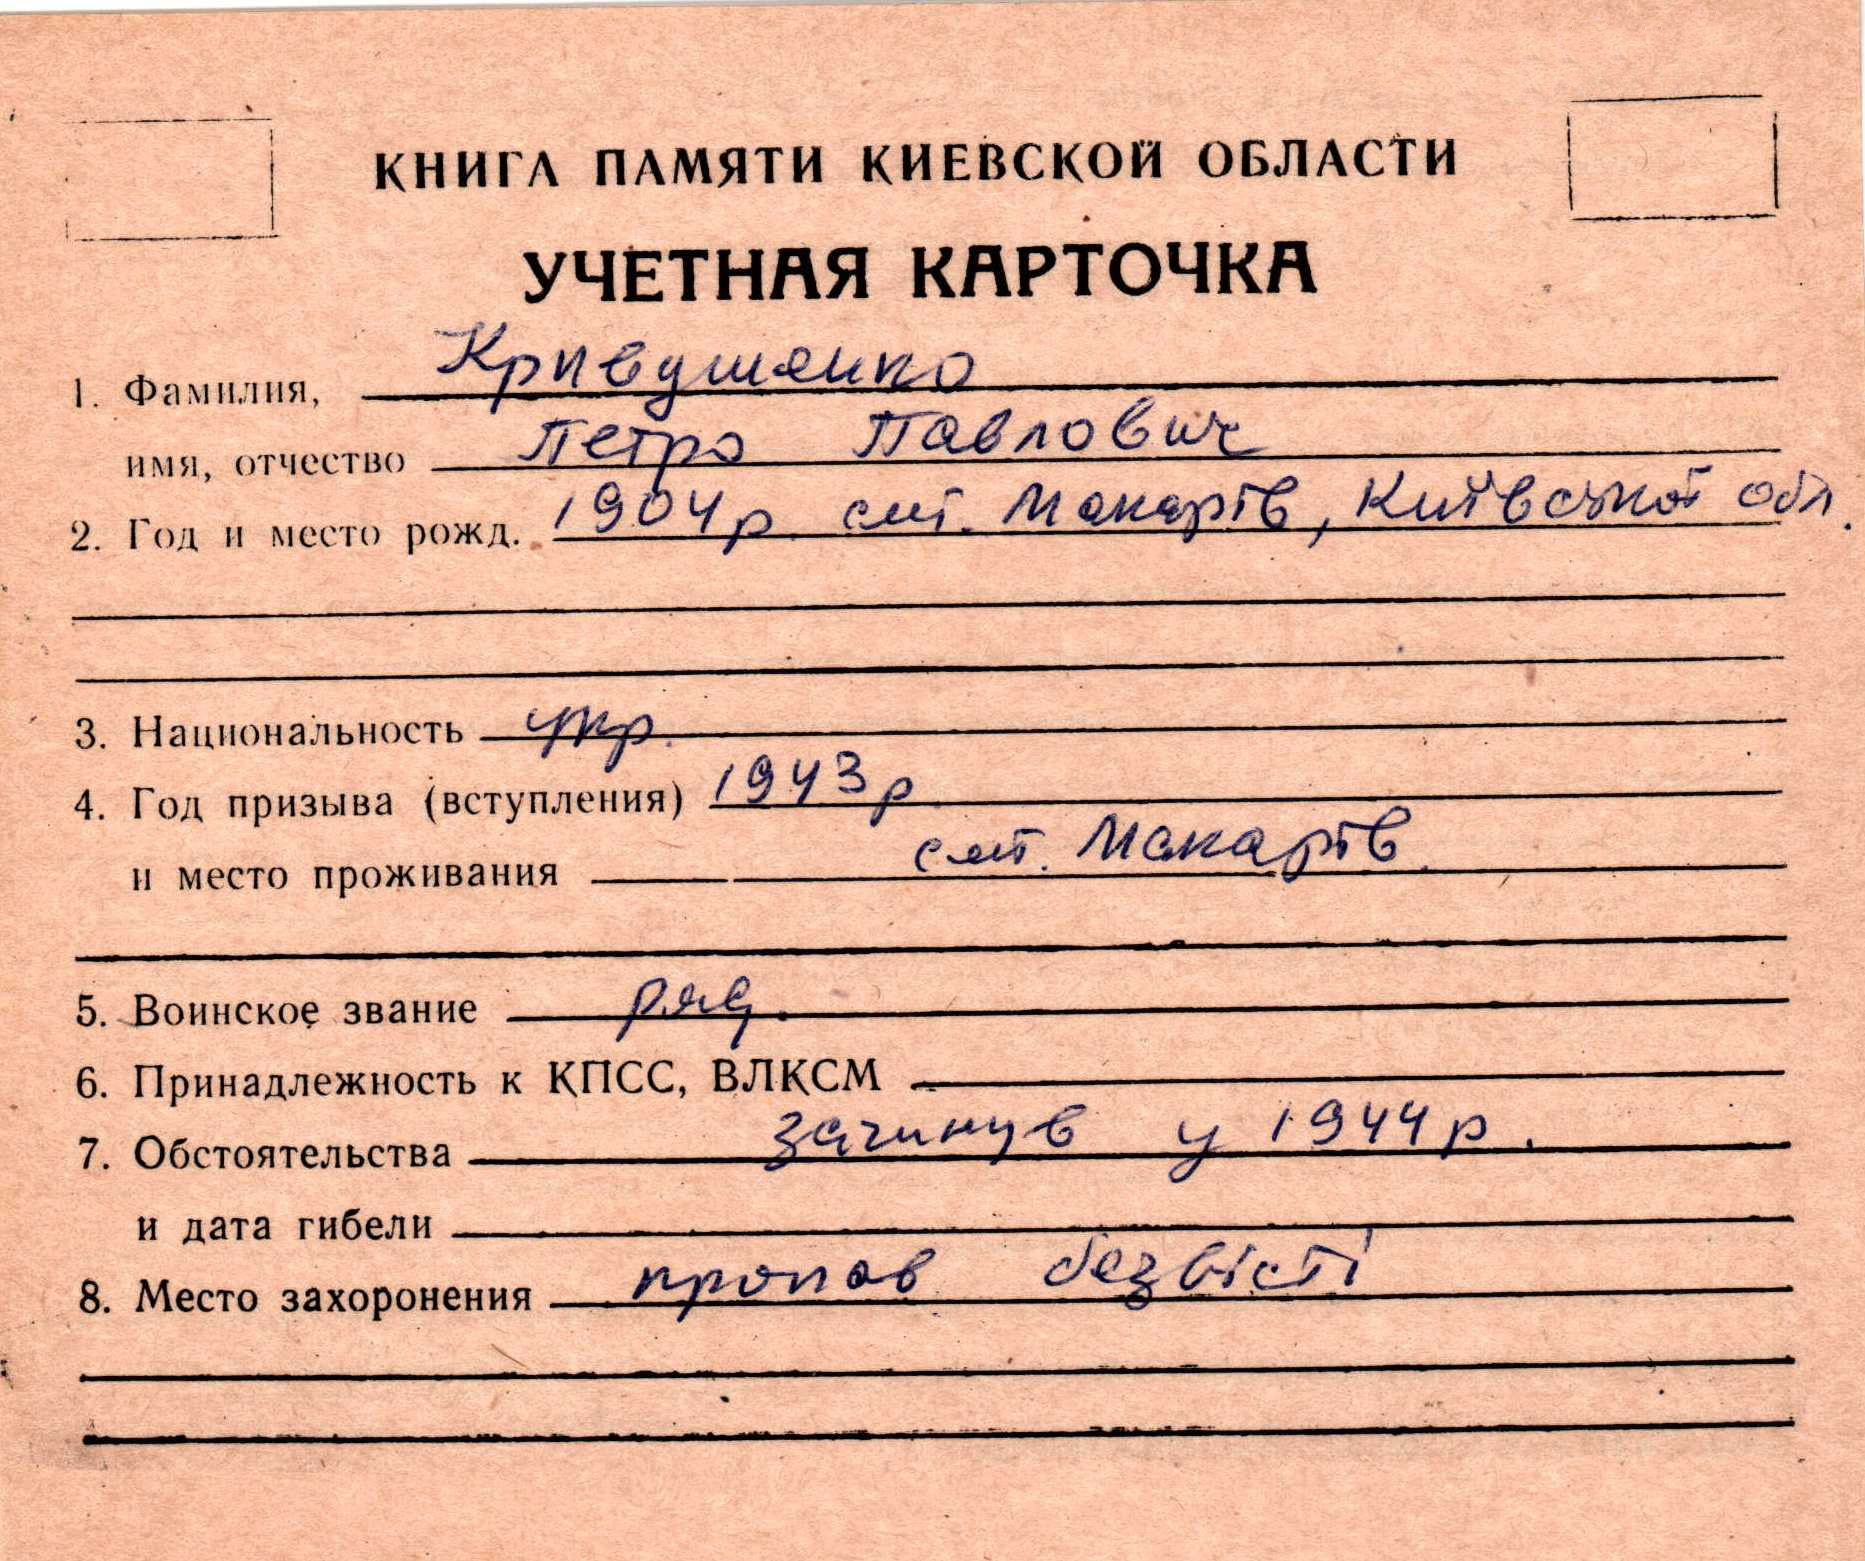 КНИГА ПАМЯТИ КИЕВСКОЙ ОБЛАСТИ
УЧЕТНАЯ КАРТОЧКА
1. Фамилия, Кривушенко
имя, отчество Петро Павлович
2. Год и место рожд. 1904 р. смт. Макарів, Київської обл.
3. Национальность укр.
4. Год призыва (вступления) 1943 р.
и место проживания смт. Макарів.
5. Воинское звание ряд.
6. Принадлежность к КПСС, ВЛКСМ
7. Обстоятельства загинув у 1944 р.
и дата гибели
8. Место захоронения пропав безвісті